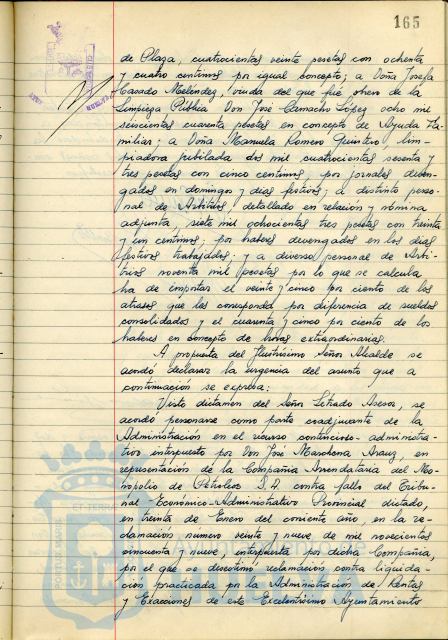 165
de Plaza, cuatrocientas veinte pesetas con ochenta
y cuatro centimos por igual concepto; a Doña Josefa
Casado Melendez, viuda del que fué obrero de la
Limpieza Pública Don José Camacho López ocho mil
seiscientas cuarenta pesetas en concepto de Ayuda Fa-
miliar; a Doña Manuela Romero Quintero, lim-
piadora jubilada dos mil cuatrocientas sesenta y
tres pesetas con cinco centimos, por jornales deven-
gados en domingos y dias festivos; a distinto perso-
nal de Arbitrios detallado en relación y nómina
adjunta, siete mil ochocientas tres pesetas con treinta
y un centimos, por haberes devengados en los dias
festivos trabajados; y a diverso personal de Arbi-
trios noventa mil pesetas por lo que se calcula
ha de importar el veinte y cinco por ciento de los
atrasos que les corresponda por diferencia de sueldos
consolidados y el cuarenta y cinco por ciento de los
haberes en concepto de horas extraordinarias.
A propuesta del Ilustrísimo Señor Alcalde se
acordó declarar la urgencia del asunto que a
continuación se expresa:
Visto dictamen del Señor Letrado Asesor, se
acordó personarse como parte coadjuvante de la
Administración en el recurso contencioso-administra-
tivo interpuesto por Don José Marchena Arauz, en
representación de la Compañia Arrendataria del Mo-
nopolio de Petroleos S.A. contra fallo del Tribu-
nal Económico-Administrativo Provincial dictado,
en treinta de Enero del corriente año, en la re-
clamación número veinte y nueve, de mil novecientos
cincuenta y nueve, interpuesta por dicha Compañia,
por el que se desestimó reclamación contra liquida-
ción practicada por la Administración de Rentas
y Exacciones de este Excelentísimo Ayuntamiento